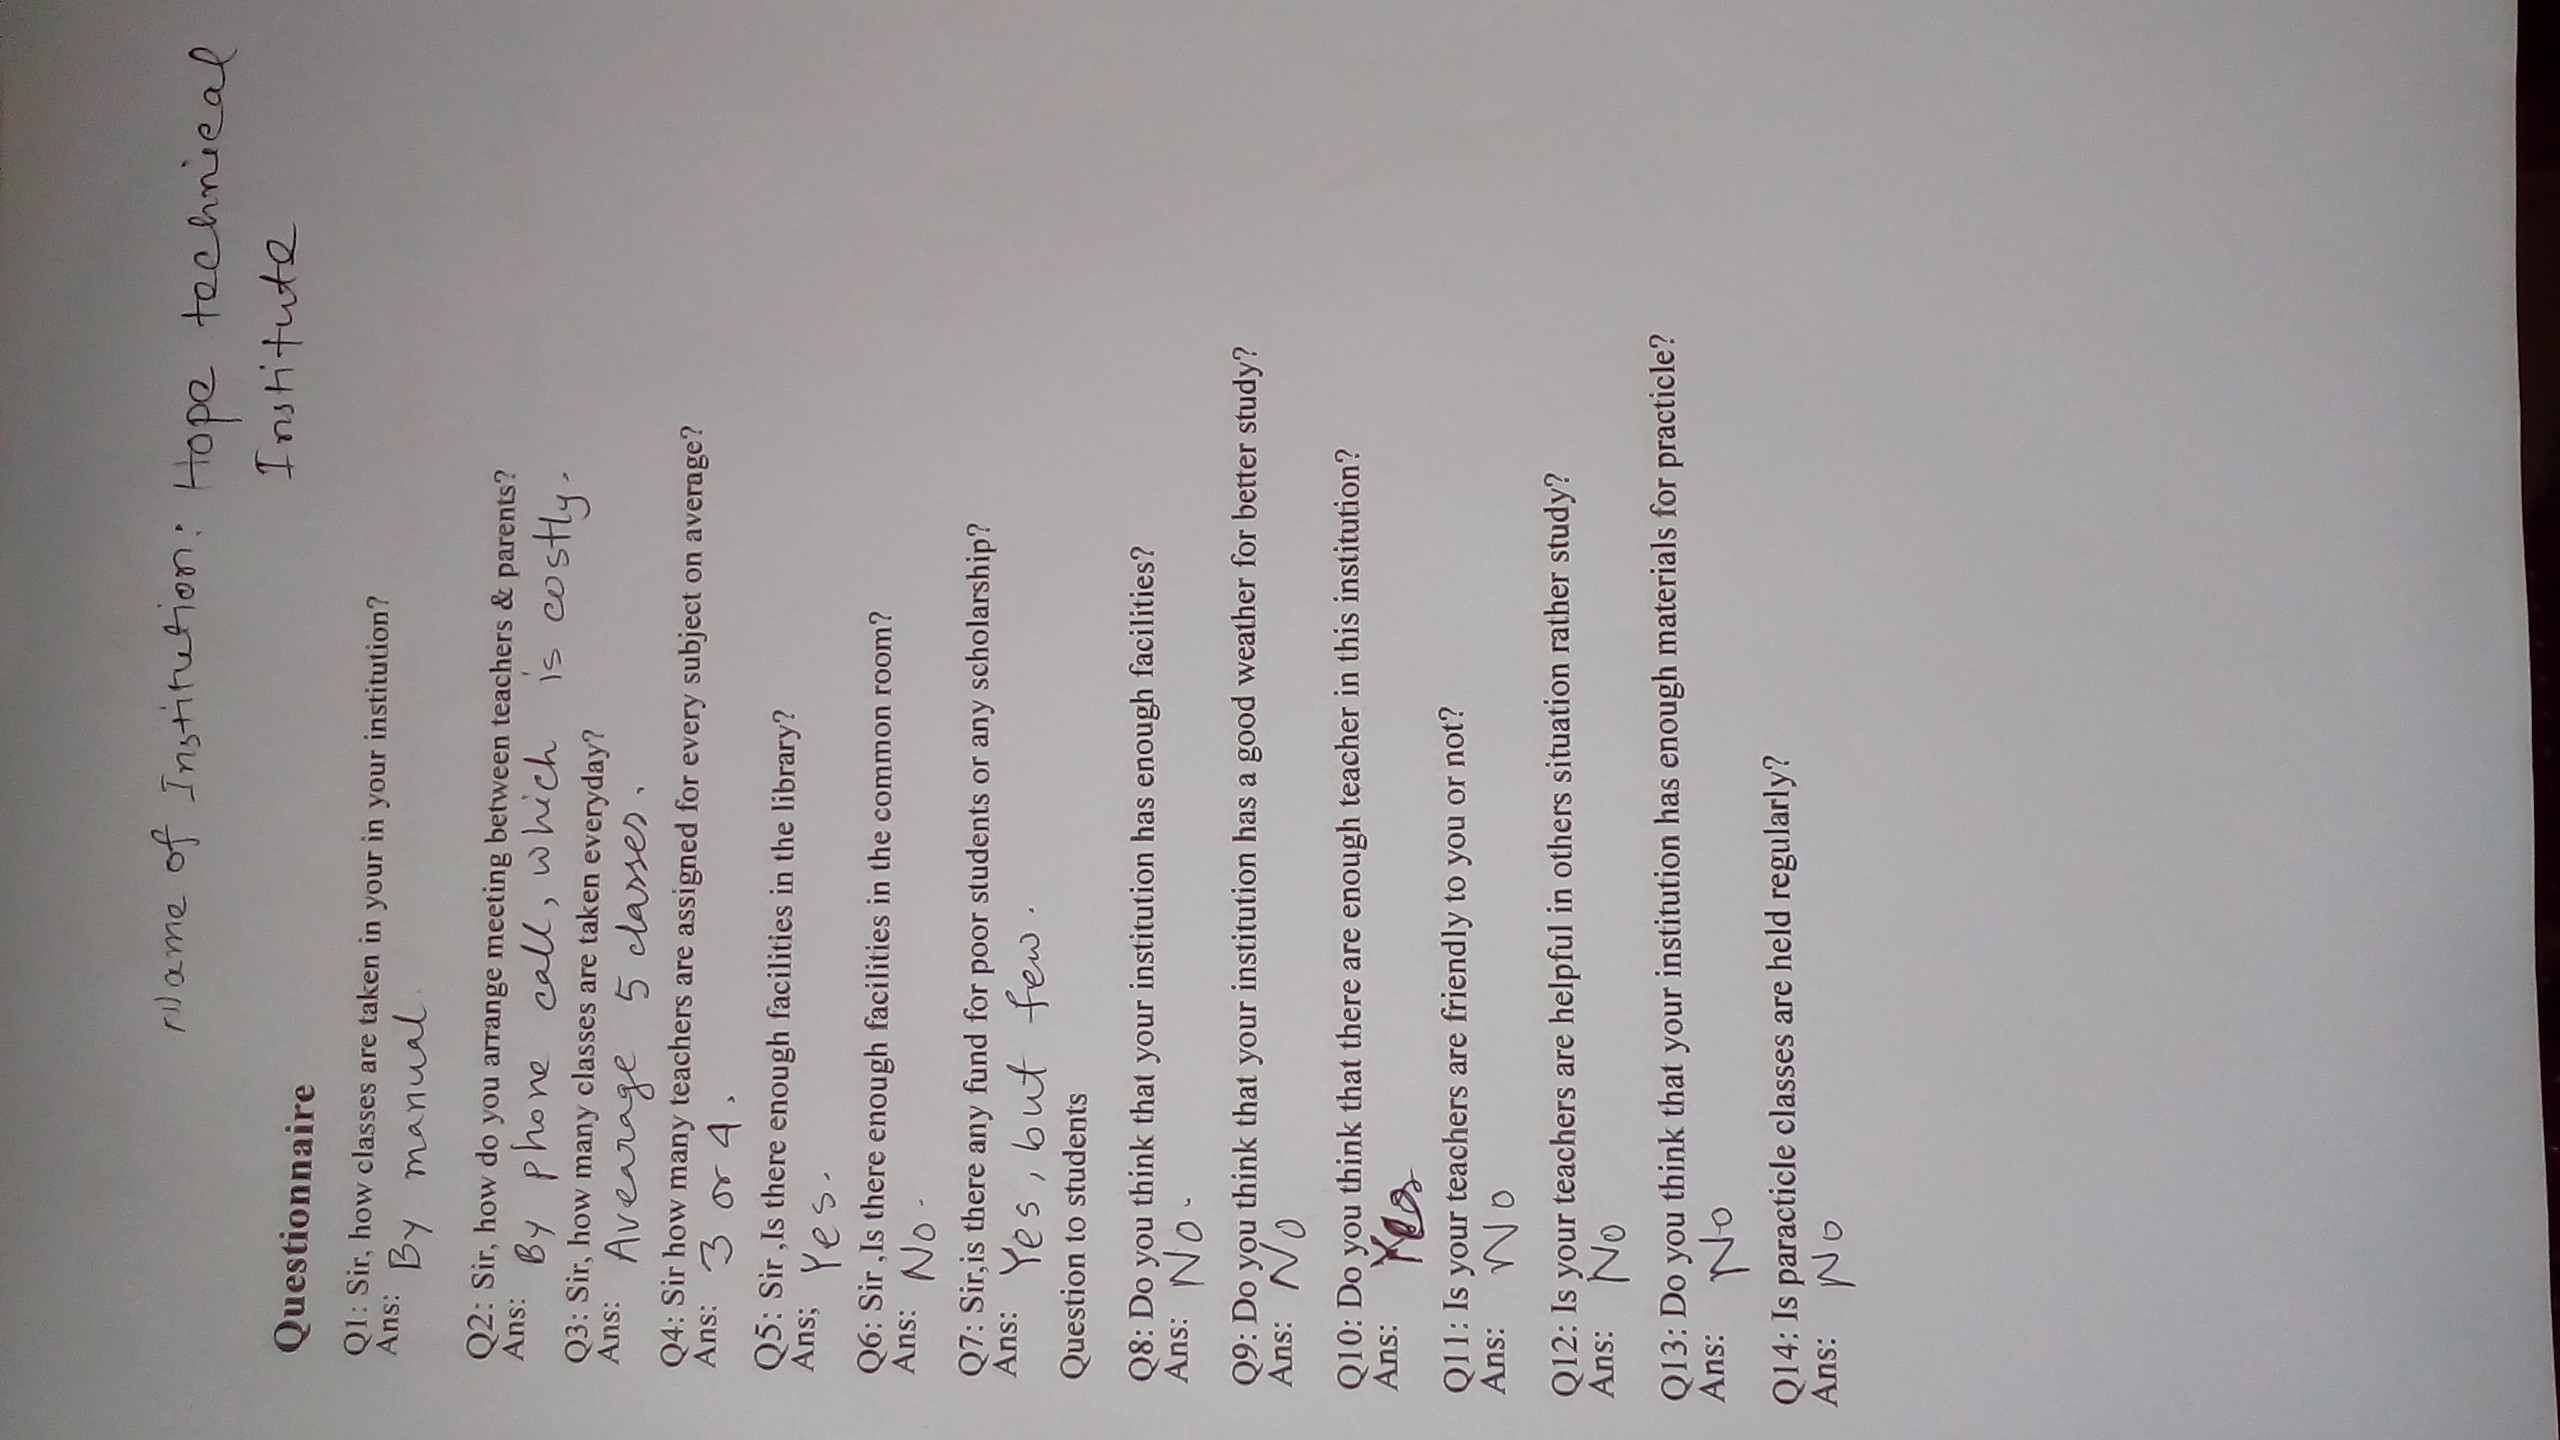 Name of Institution: Hope technical
Institute
Questionnaire
Q1: Sir, how classes are taken in your in your institution?
Ans: By manual.
Q2: Sir, how do you arrange meeting between teachers & parents?
Ans: By phone call, which is costly.
Q3: Sir, how many classes are taken everyday?
Ans: Avearage 5 classes.
Q4: Sir how many teachers are assigned for every subject on average?
Ans: 3 or 4.
Q5: Sir ,Is there enough facilities in the library?
Ans; Yes.
Q6: Sir ,Is there enough facilities in the common room?
Ans: No.
Q7: Sir,is there any fund for poor students or any scholarship?
Ans: Yes, but few.
Question to students
Q8: Do you think that your institution has enough facilities?
Ans: No.
Q9: Do you think that your institution has a good weather for better study?
Ans: No
Q10: Do you think that there are enough teacher in this institution?
Ans: Yes
Q11: Is your teachers are friendly to you or not?
Ans: No
Q12: Is your teachers are helpful in others situation rather study?
Ans: No
Q13: Do you think that your institution has enough materials for practicle?
Ans: No
Q14: Is paracticle classes are held regularly?
Ans: No